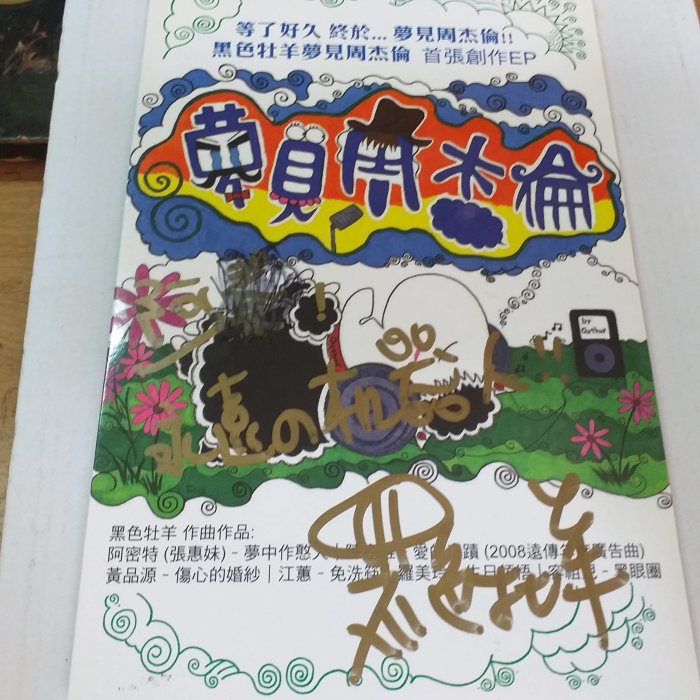 等了好久 終於... 夢見周杰倫!!
黑色牡羊夢見周杰倫 首張創作EP
夢見周杰倫
by
Arthur
!
永遠の机器人!!
黑色牡羊
黑色牡羊 作曲作品:
阿密特 (張惠妹) - 夢中作憨人 | 愛的 蹟 (2008遠傳 廣告曲)
黃品源 - 傷心的婚紗 | 江蕙 - 免洗筷 | 羅美玲 - 生日頓悟 | 容祖兒 - 黑眼圈